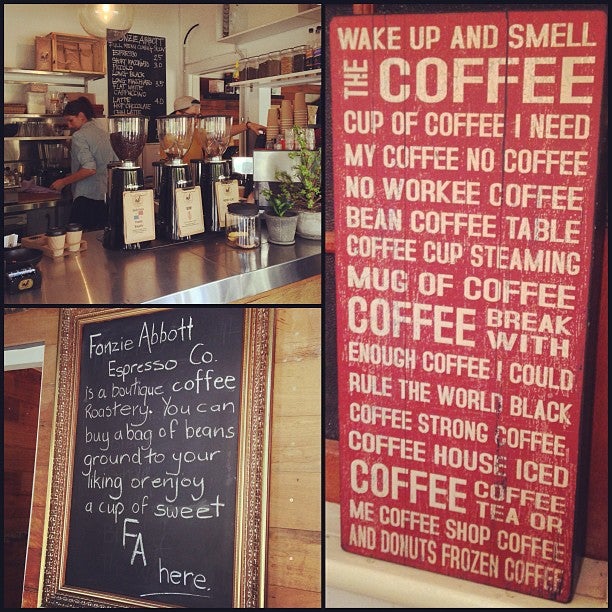 FONZIE ABBOTT
FULL MENU
ESPRESSO
SHORT MACCHIATO
PICCOLO
LONG BLACK
LONG MACCHIATO
FLAT WHITE
CAPPUCCINO
LATTE
HOT CHOCOLATE
Fonzie Abbott
Espresso Co.
is a boutique coffee
Roastery. You can
buy a bag of beans
ground to your
liking or enjoy
a cup of sweet
FA
here.
WAKE UP AND SMELL
THE COFFEE
CUP OF COFFEE I NEED
MY COFFEE NO COFFEE
NO WORKEE COFFEE
BEAN COFFEE TABLE
COFFEE CUP STEAMING
MUG OF COFFEE
COFFEE BREAK
WITH
ENOUGH COFFEE I COULD
RULE THE WORLD BLACK
COFFEE STRONG COFFEE
COFFEE HOUSE ICED
COFFEE COFFEE
TEA OR
ME COFFEE SHOP COFFEE
AND DONUTS FROZEN COFFEE